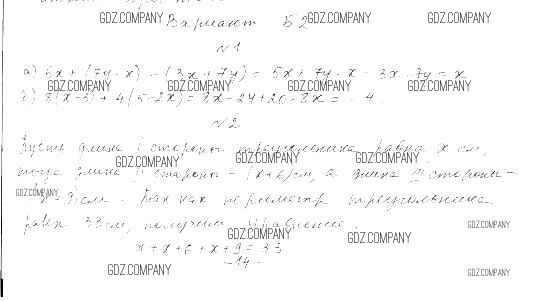 GDZ.COMPANY GDZ.COMPANY GDZ.COMPANY
Вариант Б2
№1
а) 5x + (7y - x) - (3x + 7y) = 5x + 7y - x - 3x - 7y = x
GDZ.COMPANY GDZ.COMPANY GDZ.COMPANY GDZ.COMPANY
б) 8(x-3) + 4(5-2x) = 8x - 24 + 20 - 8x = -4.
№2
Пусть длина I стороны треугольника равна x см,
GDZ.COMPANY GDZ.COMPANY GDZ.COMPANY
тогда длина II стороны - (x+6) см, а длина III стороны -
GDZ.COMPANY
см. Так как периметр треугольника
равен 33 см, получим уравнение:
GDZ.COMPANY GDZ.COMPANY GDZ.COMPANY
x + x + 6 + x + 9 = 33
- 14 -
GDZ.COMPANY GDZ.COMPANY